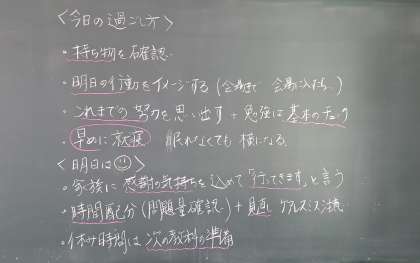 <今日の過ごし方>
・持ち物を確認
・明日の行動をイメージする（会場まで 会場に入ったら）
・これまでの努力を思い出す + 勉強は基本のチェック
・早めに就寝 眠れなくても横になる
<明日は☺>
・家族に感謝の気持ちを込めて「行ってきます」と言う
・時間配分（問題量確認）+ 見直し ケアレスミス
・休み時間は次の教科の準備